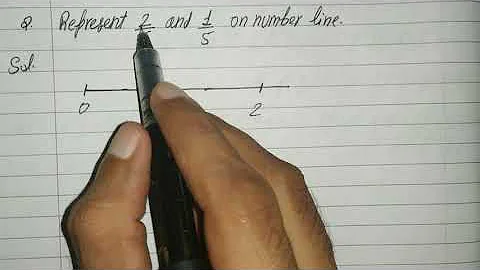 Q. Represent 2/ and 1/5 on number line.
Sol.
0 2